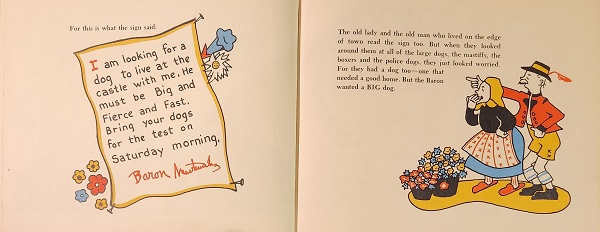 For this is what the sign said:
I am looking for a
dog to live at the
castle with me. He
must be Big and
Fierce and Fast.
Bring your dogs
for the test on
Saturday morning.
Baron
The old lady and the old man who lived on the edge
of town read the sign too. But when they looked
around them at all of the large dogs, the mastiffs, the
boxers and the police dogs, they just looked worried.
For they had a dog too—one that
needed a good home. But the Baron
wanted a BIG dog.